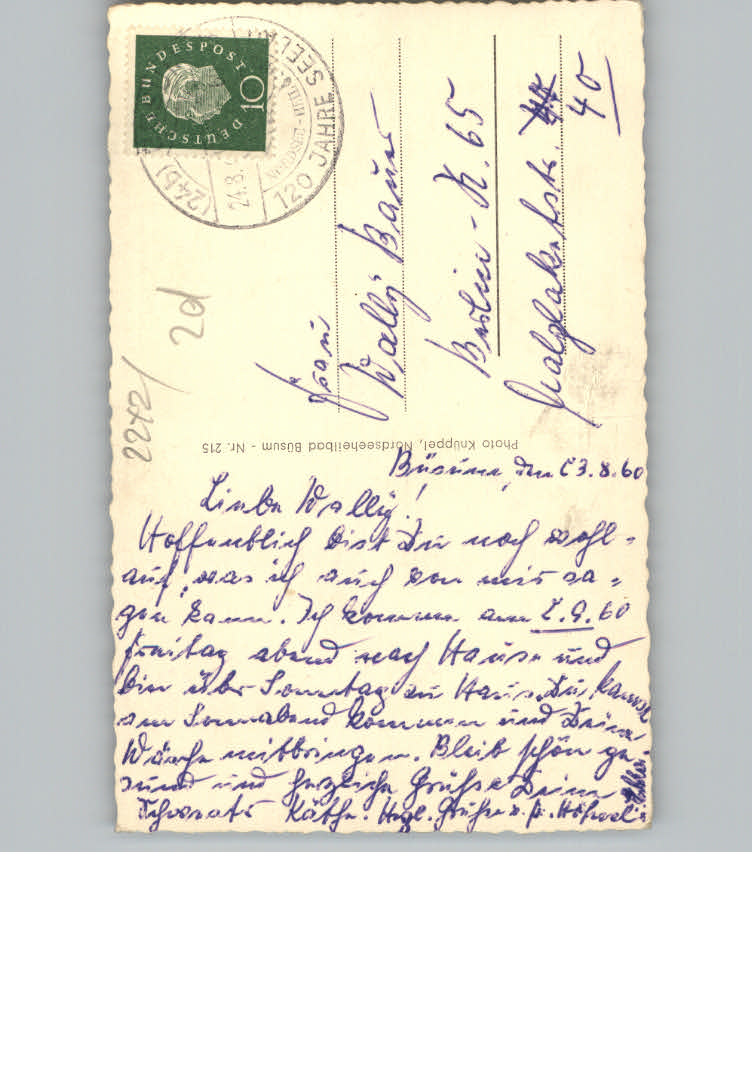 DEUTSCHE BUNDESPOST
10
(24b)
24.8.
120 JAHRE SEEL
NORDSEE-HEIL
2d
2242/
Frau
Wally Bauer
Berlin - N. 65
40
Photo Knüppel, Nordseeheilbad Büsum - Nr. 215
Büsum, den 23.8.60
Liebe Wally!
Hoffentlich bist Du noch wohl-
auf, was ich auch von mir sa-
gen kann. Ich komme am 2.9.60
Freitag abend nach Hause und
bin über Sonntag zu Haus. Du kannst
am Sonnabend kommen und Deine
Wäsche mitbringen. Bleib schön ge-
sund und herzliche Grüße Deine
Käthe. Hrzl. Grüße